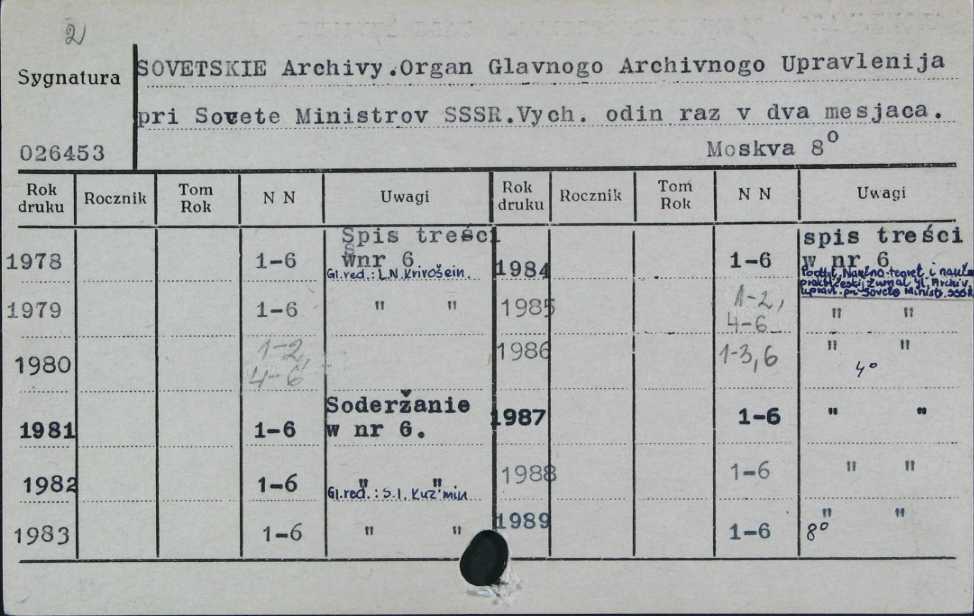 2
Sygnatura
SOVETSKIE Archivy.Organ Glavnogo Archivnogo Upravlenija
pri Sovete Ministrov SSSR.Vych. odin raz v dva mesjaca.
026453
Moskva 8º
Rok druku Rocznik Tom Rok N N Uwagi Rok druku Rocznik Tom Rok N N Uwagi
1978 1-6 Spis treści
w nr 6
Gl.red.: L.N. Krivošein.
1979 1-6 " "
1980 1-2,
4-6
1981 1-6 Soderžanie
w nr 6.
1982 1-6 " "
Gl.red.: S.I. Kuz'min
1983 1-6 " "
1984 1-6 spis treści
w nr 6
1985 1-2,
4-6 " "
1986 1-3,6 " "
4º
1987 1-6 " "
1988 1-6 " "
1989 1-6 " "
8º